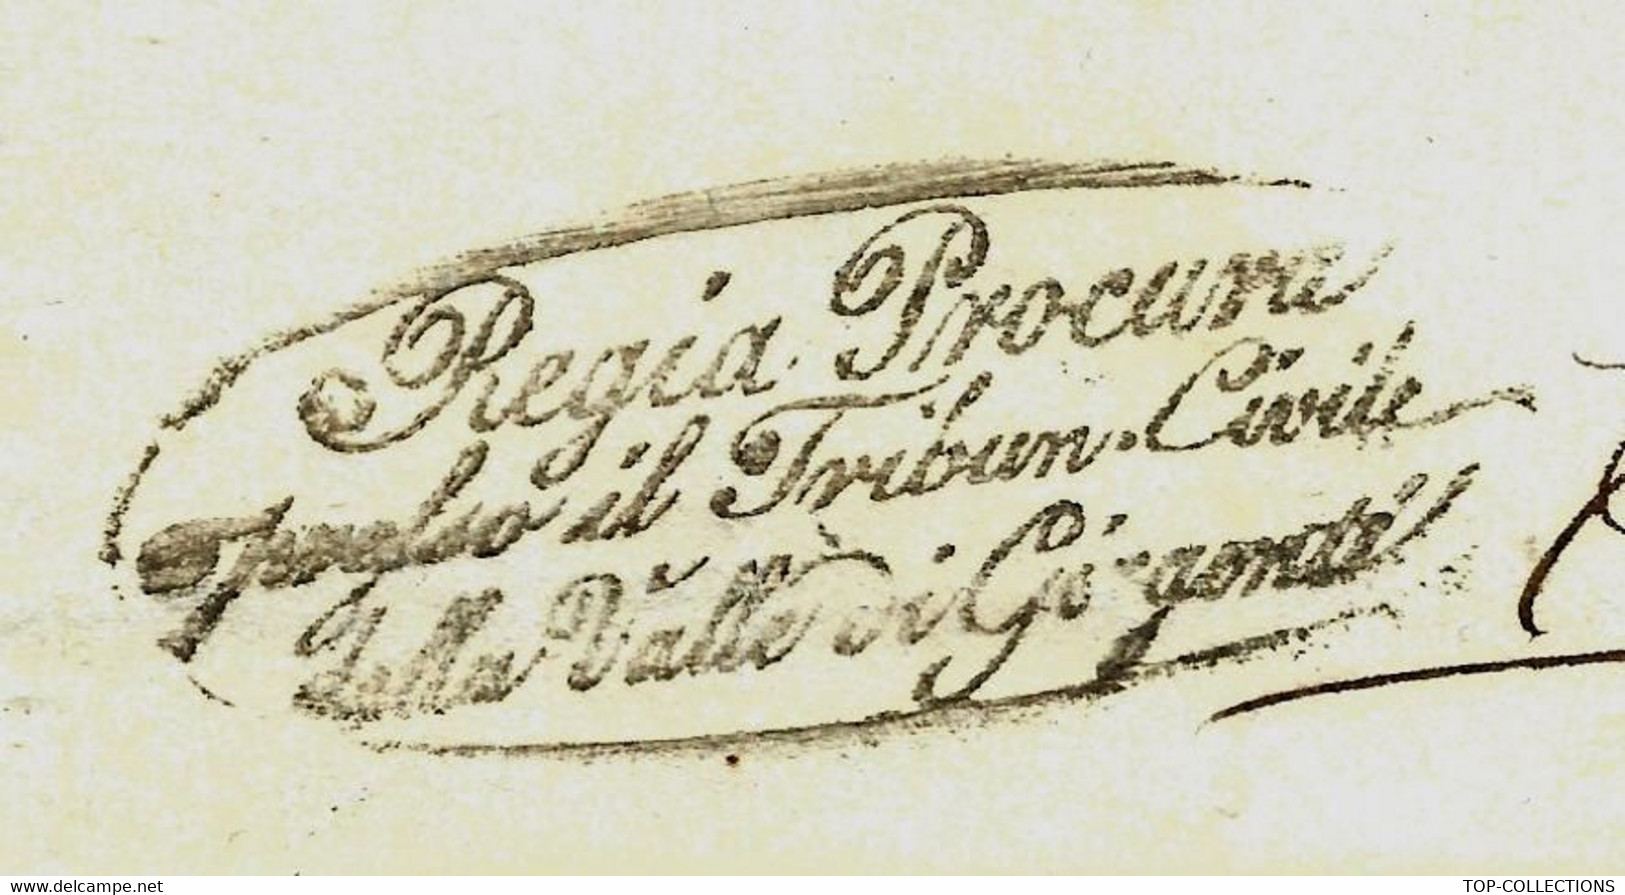 Regia Procura
presso il Tribun. Civile
della Valle di Girgenti
www.delcampe.net
TOP-COLLECTIONS